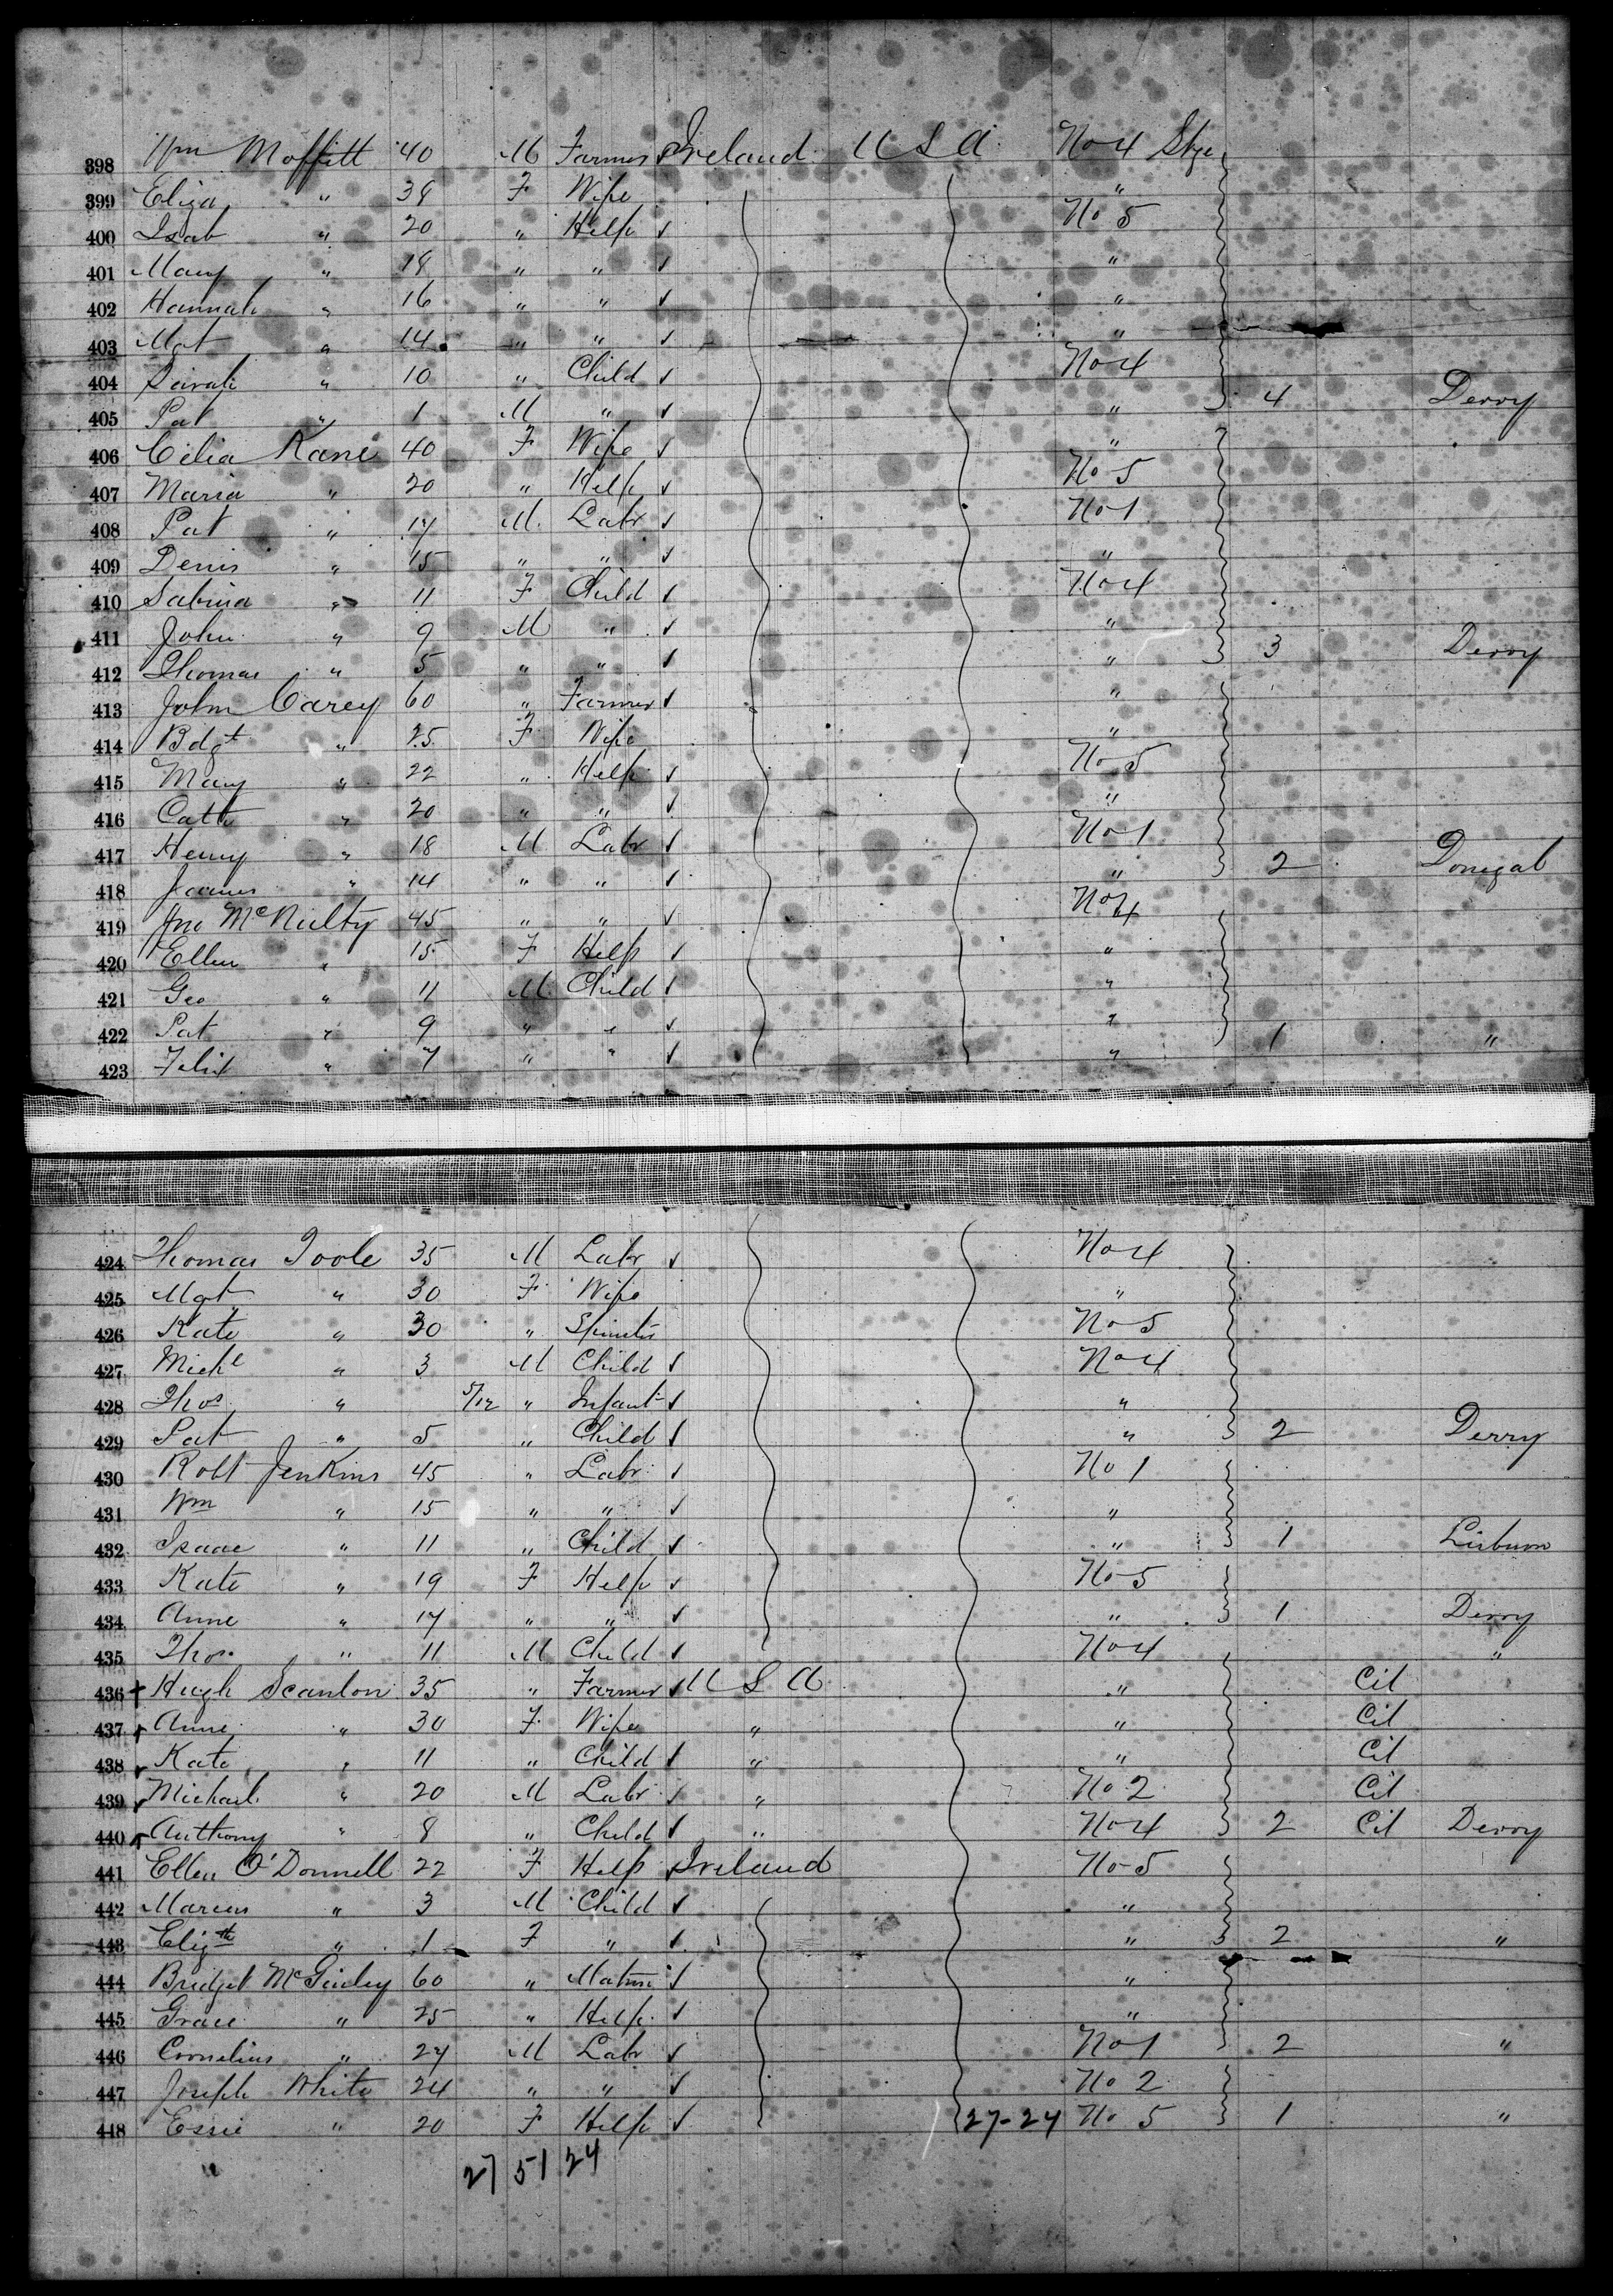 398 Wm Moffitt 40 M Farmer Ireland U S A No 4 Stge
399 Eliza " 38 F Wife "
400 Isab " 20 " Help No 5
401 Mary " 18 " " "
402 Hannah " 16 " " "
403 Mgt " 14 " " "
404 Sarah " 10 " Child No 4
405 Pat " 1 M " " 4 Derry
406 Celia Kane 40 F Wife "
407 Maria " 20 " Help No 5
408 Pat " 17 M Labr No 1
409 Denis " 15 " " "
410 Sabina " 11 F Child No 4
411 John " 9 M " "
412 Thomas " 5 " " " 3 Derry
413 John Carey 60 " Farmer "
414 Bdgt " 25 F Wife "
415 Mary " 22 " Help No 5
416 Cath " 20 " " "
417 Henry " 18 M Labr No 1
418 James " 14 " " " 2 Donegal
419 Jno McNulty 45 " " No 4
420 Ellen " 15 F Help "
421 Geo " 11 M Child "
422 Pat " 9 " " "
423 Felix " 7 " " " 1 "
424 Thomas Toole 35 M Labr No 4
425 Mgt " 30 F Wife "
426 Kate " 30 " Spinster No 5
427 Michl " 3 M Child No 4
428 Thos " 5/12 " Infant "
429 Pat " 5 " Child " 2 Derry
430 Robt Jenkins 45 " Labr No 1
431 Wm " 15 " " "
432 Isaac " 11 " Child " 1 Lisburn
433 Kate " 19 F Help No 5
434 Anne " 17 " " " 1 Derry
435 Thos " 11 M Child No 4 "
436 + Hugh Scanlon 35 " Farmer U S A " Cit
437 + Anne " 30 F Wife " " Cit
438 Kate " 11 " Child " " Cit
439 Michael " 20 M Labr " No 2 Cit
440 Anthony " 8 " Child " No 4 2 Cit Derry
441 Ellen O'Donnell 22 F Help Ireland No 5
442 Marcus " 3 M Child "
443 Elizth " 1 F " " 2 "
444 Bridget McGinley 60 " Matron "
445 Grace " 25 " Help "
446 Cornelius " 27 M Labr No 1 2 "
447 Joseph White 24 " " No 2
448 Essie " 20 F Help 27-24 No 5 1 "
27 51 24